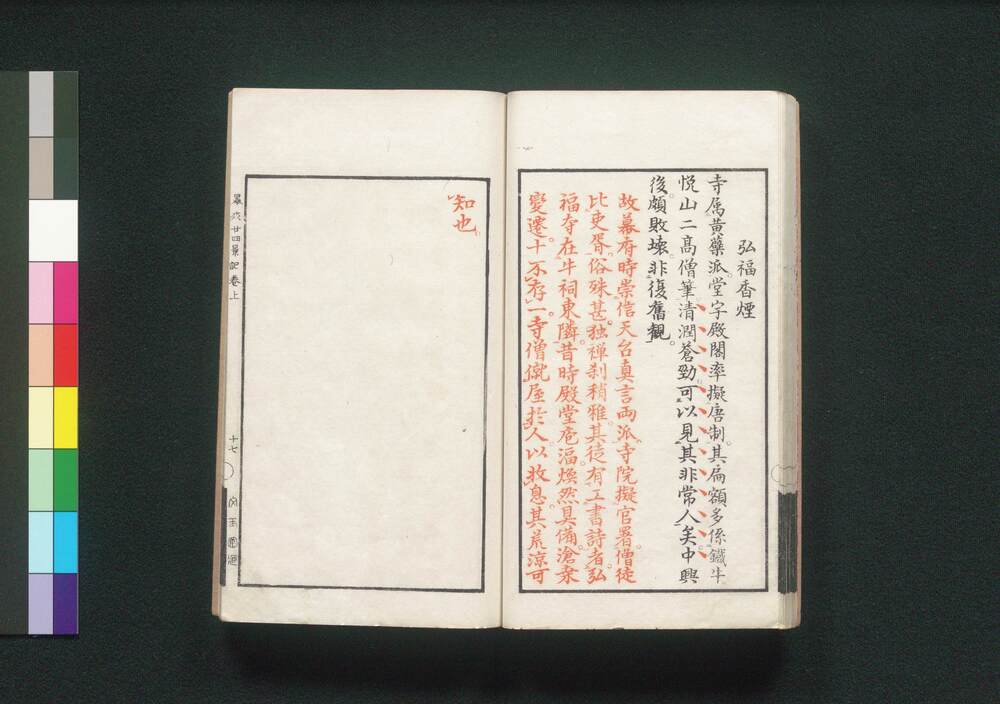 弘福香煙
寺属黄蘗派。堂宇殿閣率擬唐制。其扁額多係鐵牛
悦山二高僧筆。清潤蒼勁。可以見其非常人矣。中興
後頗敗壊。非復舊観。
故幕府時。崇信天台真言両派。寺院擬官署。僧徒
比吏胥。俗殊甚。独禅刹稍雅。其徒有工書詩者。弘
福寺在牛祠東隣。昔時殿堂庖湢。煥然具備。滄桑
變遷。十不存一。寺僧僦屋於人以救息。其荒涼可
知也。
墨水廿四景記巻上
十七